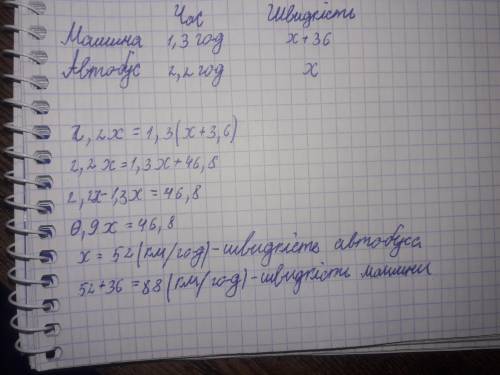 Час Швидкість
Машина 1,3 год x+36
Автобус 2,2 год x
2,2x=1,3(x+3,6)
2,2x=1,3x+46,8
2,2x-1,3x=46,8
0,9x=46,8
x=52(км/год)-швидкість автобуса
52+36=88(км/год)-швидкість машини